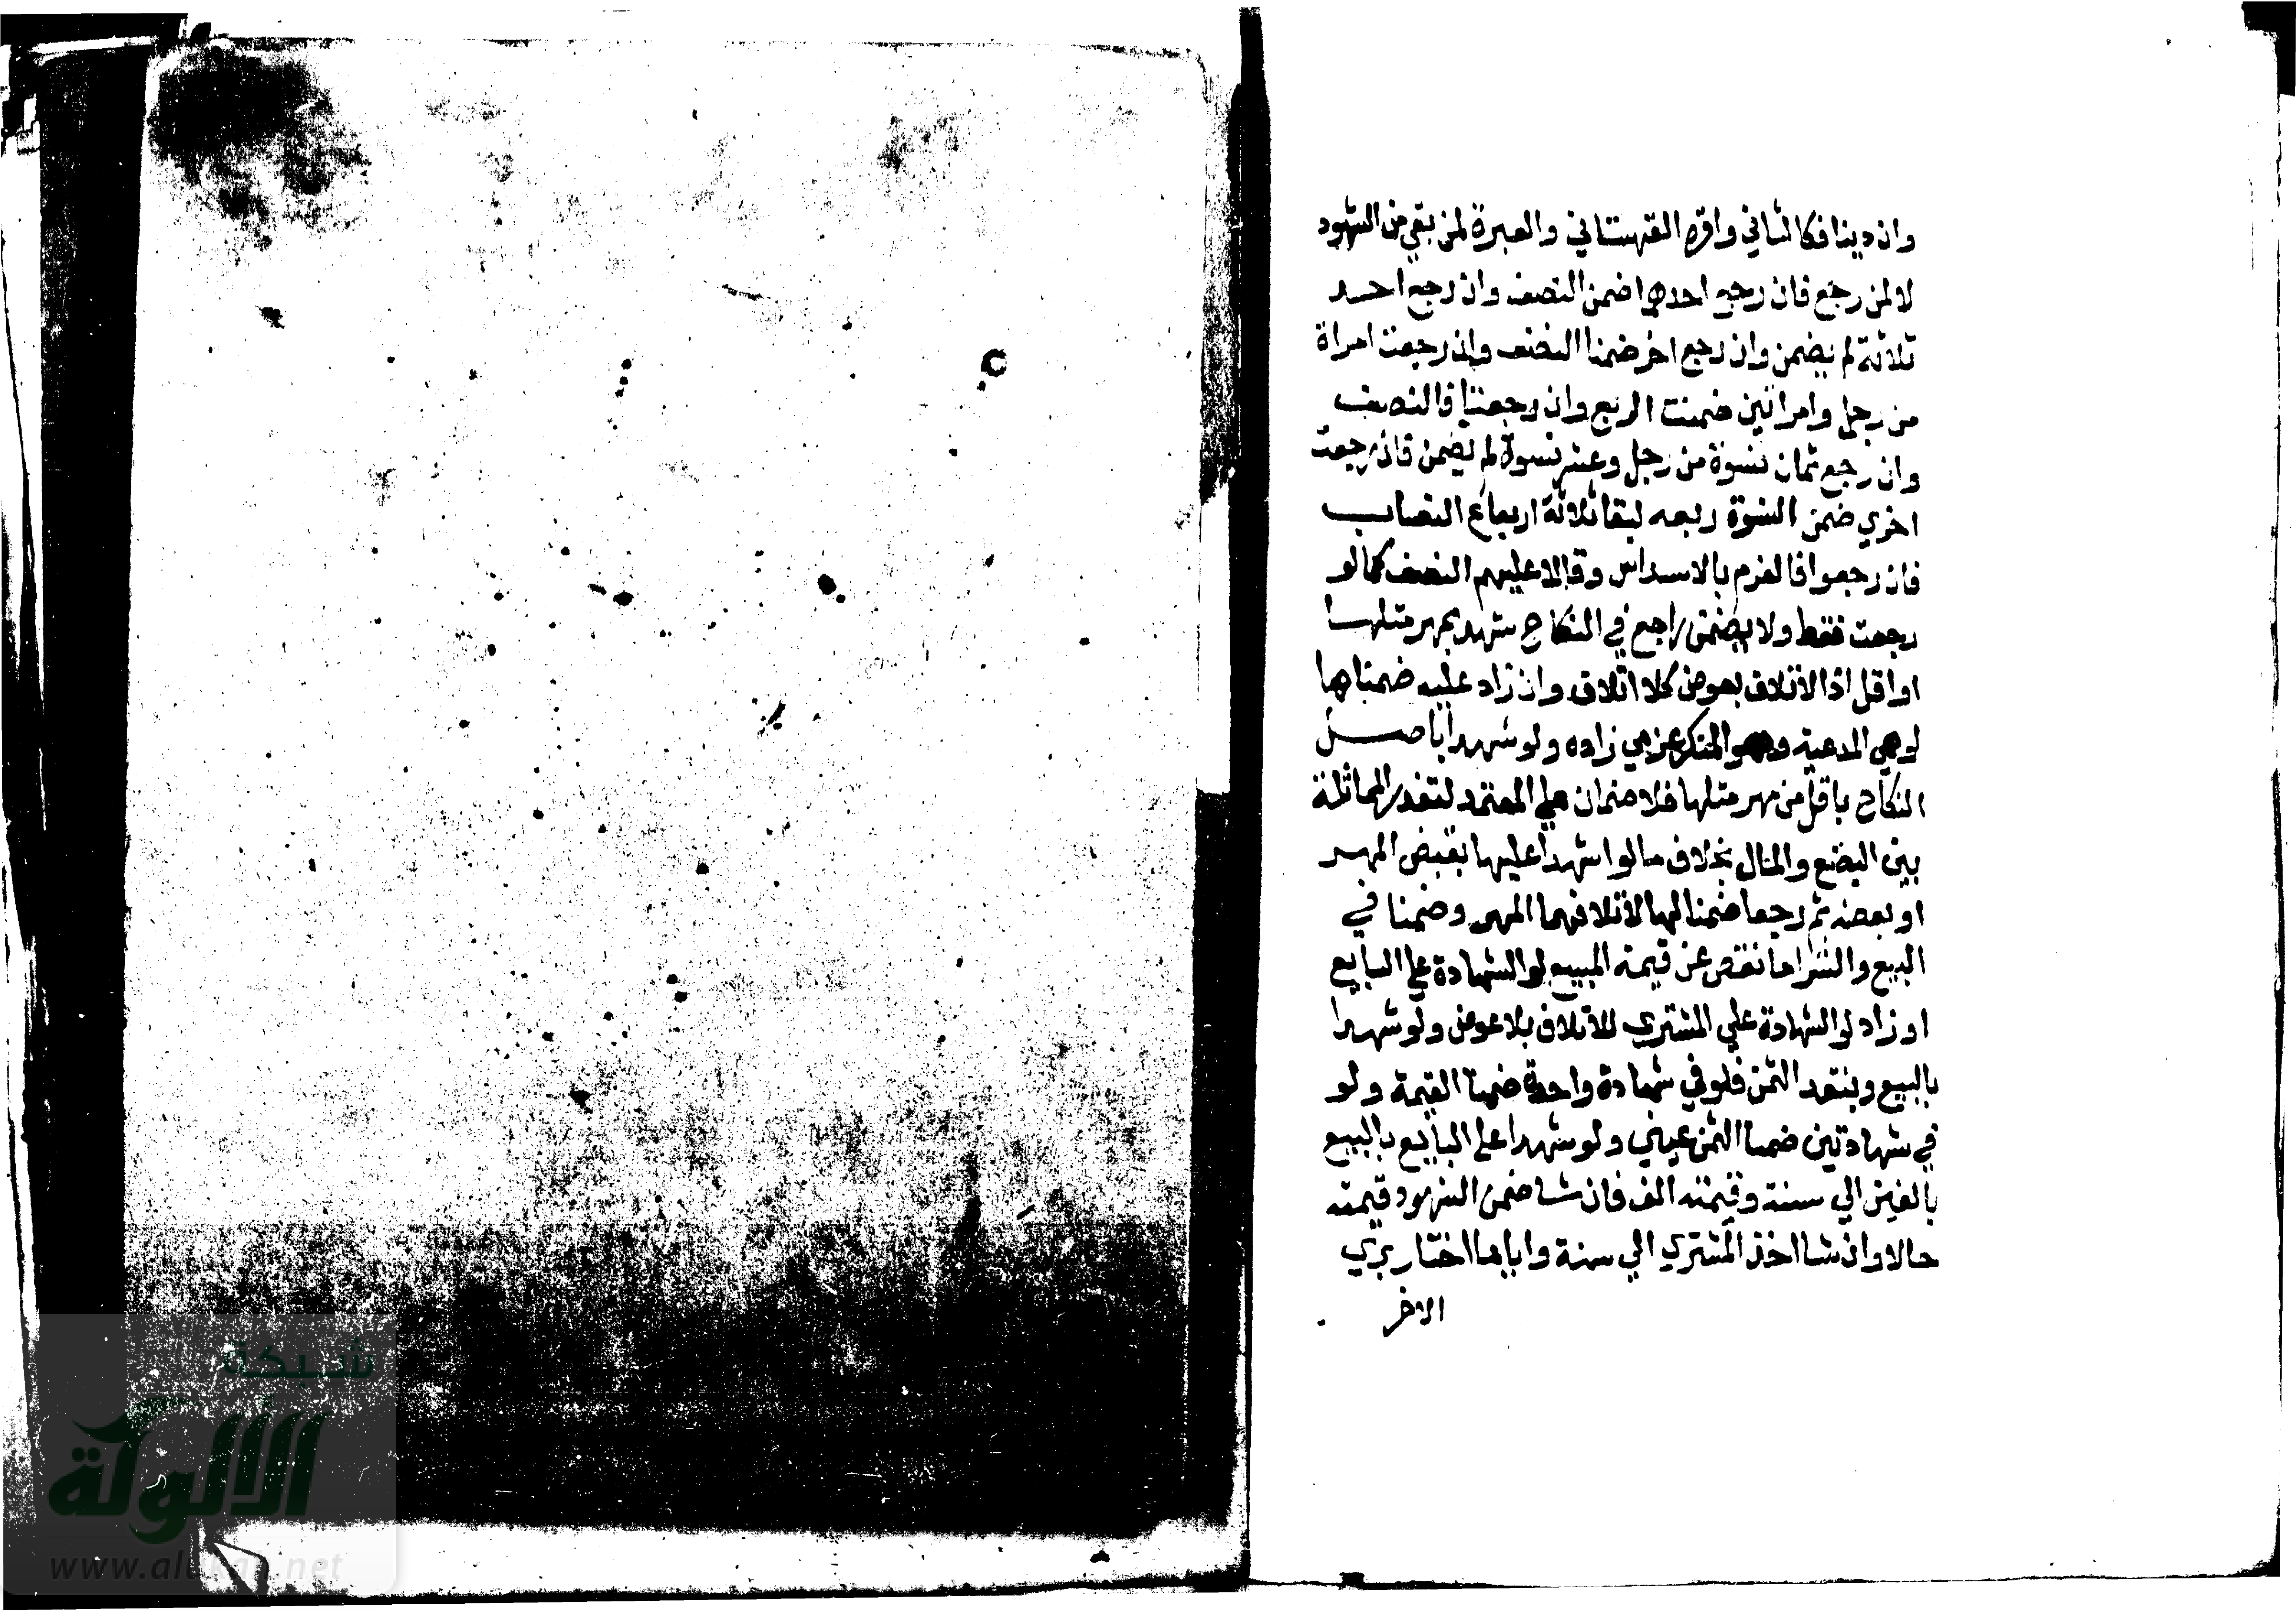 وان دينا فكالثاني واقره القهستاني والعبرة لمن بقي من الشهود
لا لمن رجع فان رجع احدهما ضمن النصف وان رجع احد
ثلاثة لم يضمن وان رجع اخر ضمنا النصف وان رجعت امراة
من رجل وامراتين ضمنت الربع وان رجعتا فالنصف
وان رجع ثمان نسوة من رجل وعشر نسوة لم يضمن فان رجعت
اخري ضمن النسوة ربعه لبقا ثلاثة ارباع النصاب
فان رجعوا فالغرم بالاسداس وقالا عليهم النصف كما لو
رجعت فقط ولا يضمن راجع في النكاح شهد بمهر مثلها
او اقل اذ الاتلاف بعوض كلا اتلاف وان زاد عليه ضمناها
لو هي المدعية وهو المنكر عزمي زاده ولو شهدا باصل
النكاح باقل من مهر مثلها فلا ضمان علي المعتمد لتعذر المماثلة
بين البضع والمال بخلاف ما لو اشهدا عليها بقبض المهر
او بعضه ثم رجعا ضمنا لها لاتلافهما المهر وضمنا في
البيع والشرا ما نقص عن قيمة المبيع لو الشهادة علي البايع
او زاد لو الشهادة علي المشتري للاتلاف بلا عوض ولو شهدا
بالبيع وبنقد الثمن فلو في شهادة واحدة ضمنا القيمة ولو
في شهادتين ضمنا الثمن عيني ولو شهدا علي البايع بالبيع
بالفين الي سنة وقيمته الف فان شا ضمن الشهود قيمته
حالا وان شا اخذ المشتري الي سنة وايا ما اختار بري
الاخر
شبكة
الألوكة
www.alukah.net